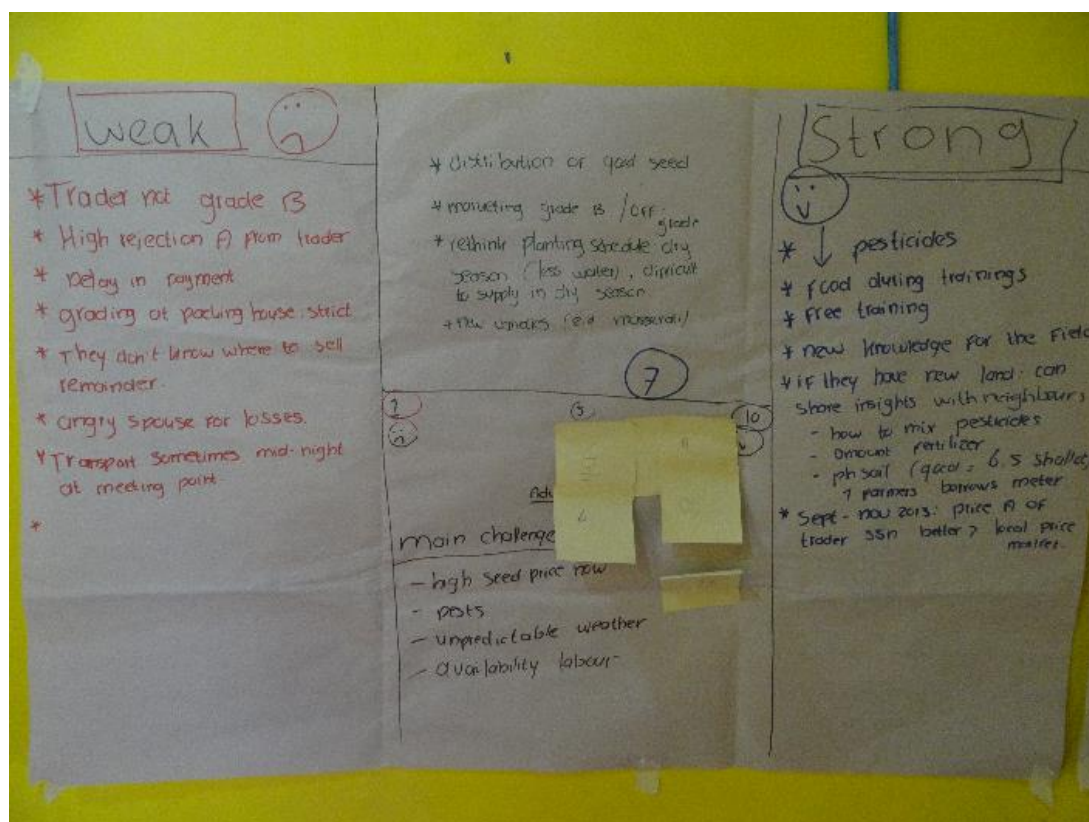 weak
* Trader not grade B
* High rejection A from trader
* Delay in payment
* grading at packing house: strict
* They don't know where to sell
remainder.
* angry spouse for losses.
* Transport sometimes mid-night
at meeting point
*
* distribution of good seed
* marketing grade B / off-
grade
* rethink planting schedule dry
season (less water), difficult
to supply in dry season.
7
5
10
main challenge
- high seed price now
- pests
- unpredictable weather
- availability labour
Strong
* ↓ pesticides
* food during trainings
* free training
* new knowledge for the Field
* if they have new land: can
share insights with neighbours
- how to mix pesticides
- amount fertilizer
- ph soil (good = 6.5
7 farmers borrows meter
* Sept - nov 2013: price A of
trader better > local price
market.